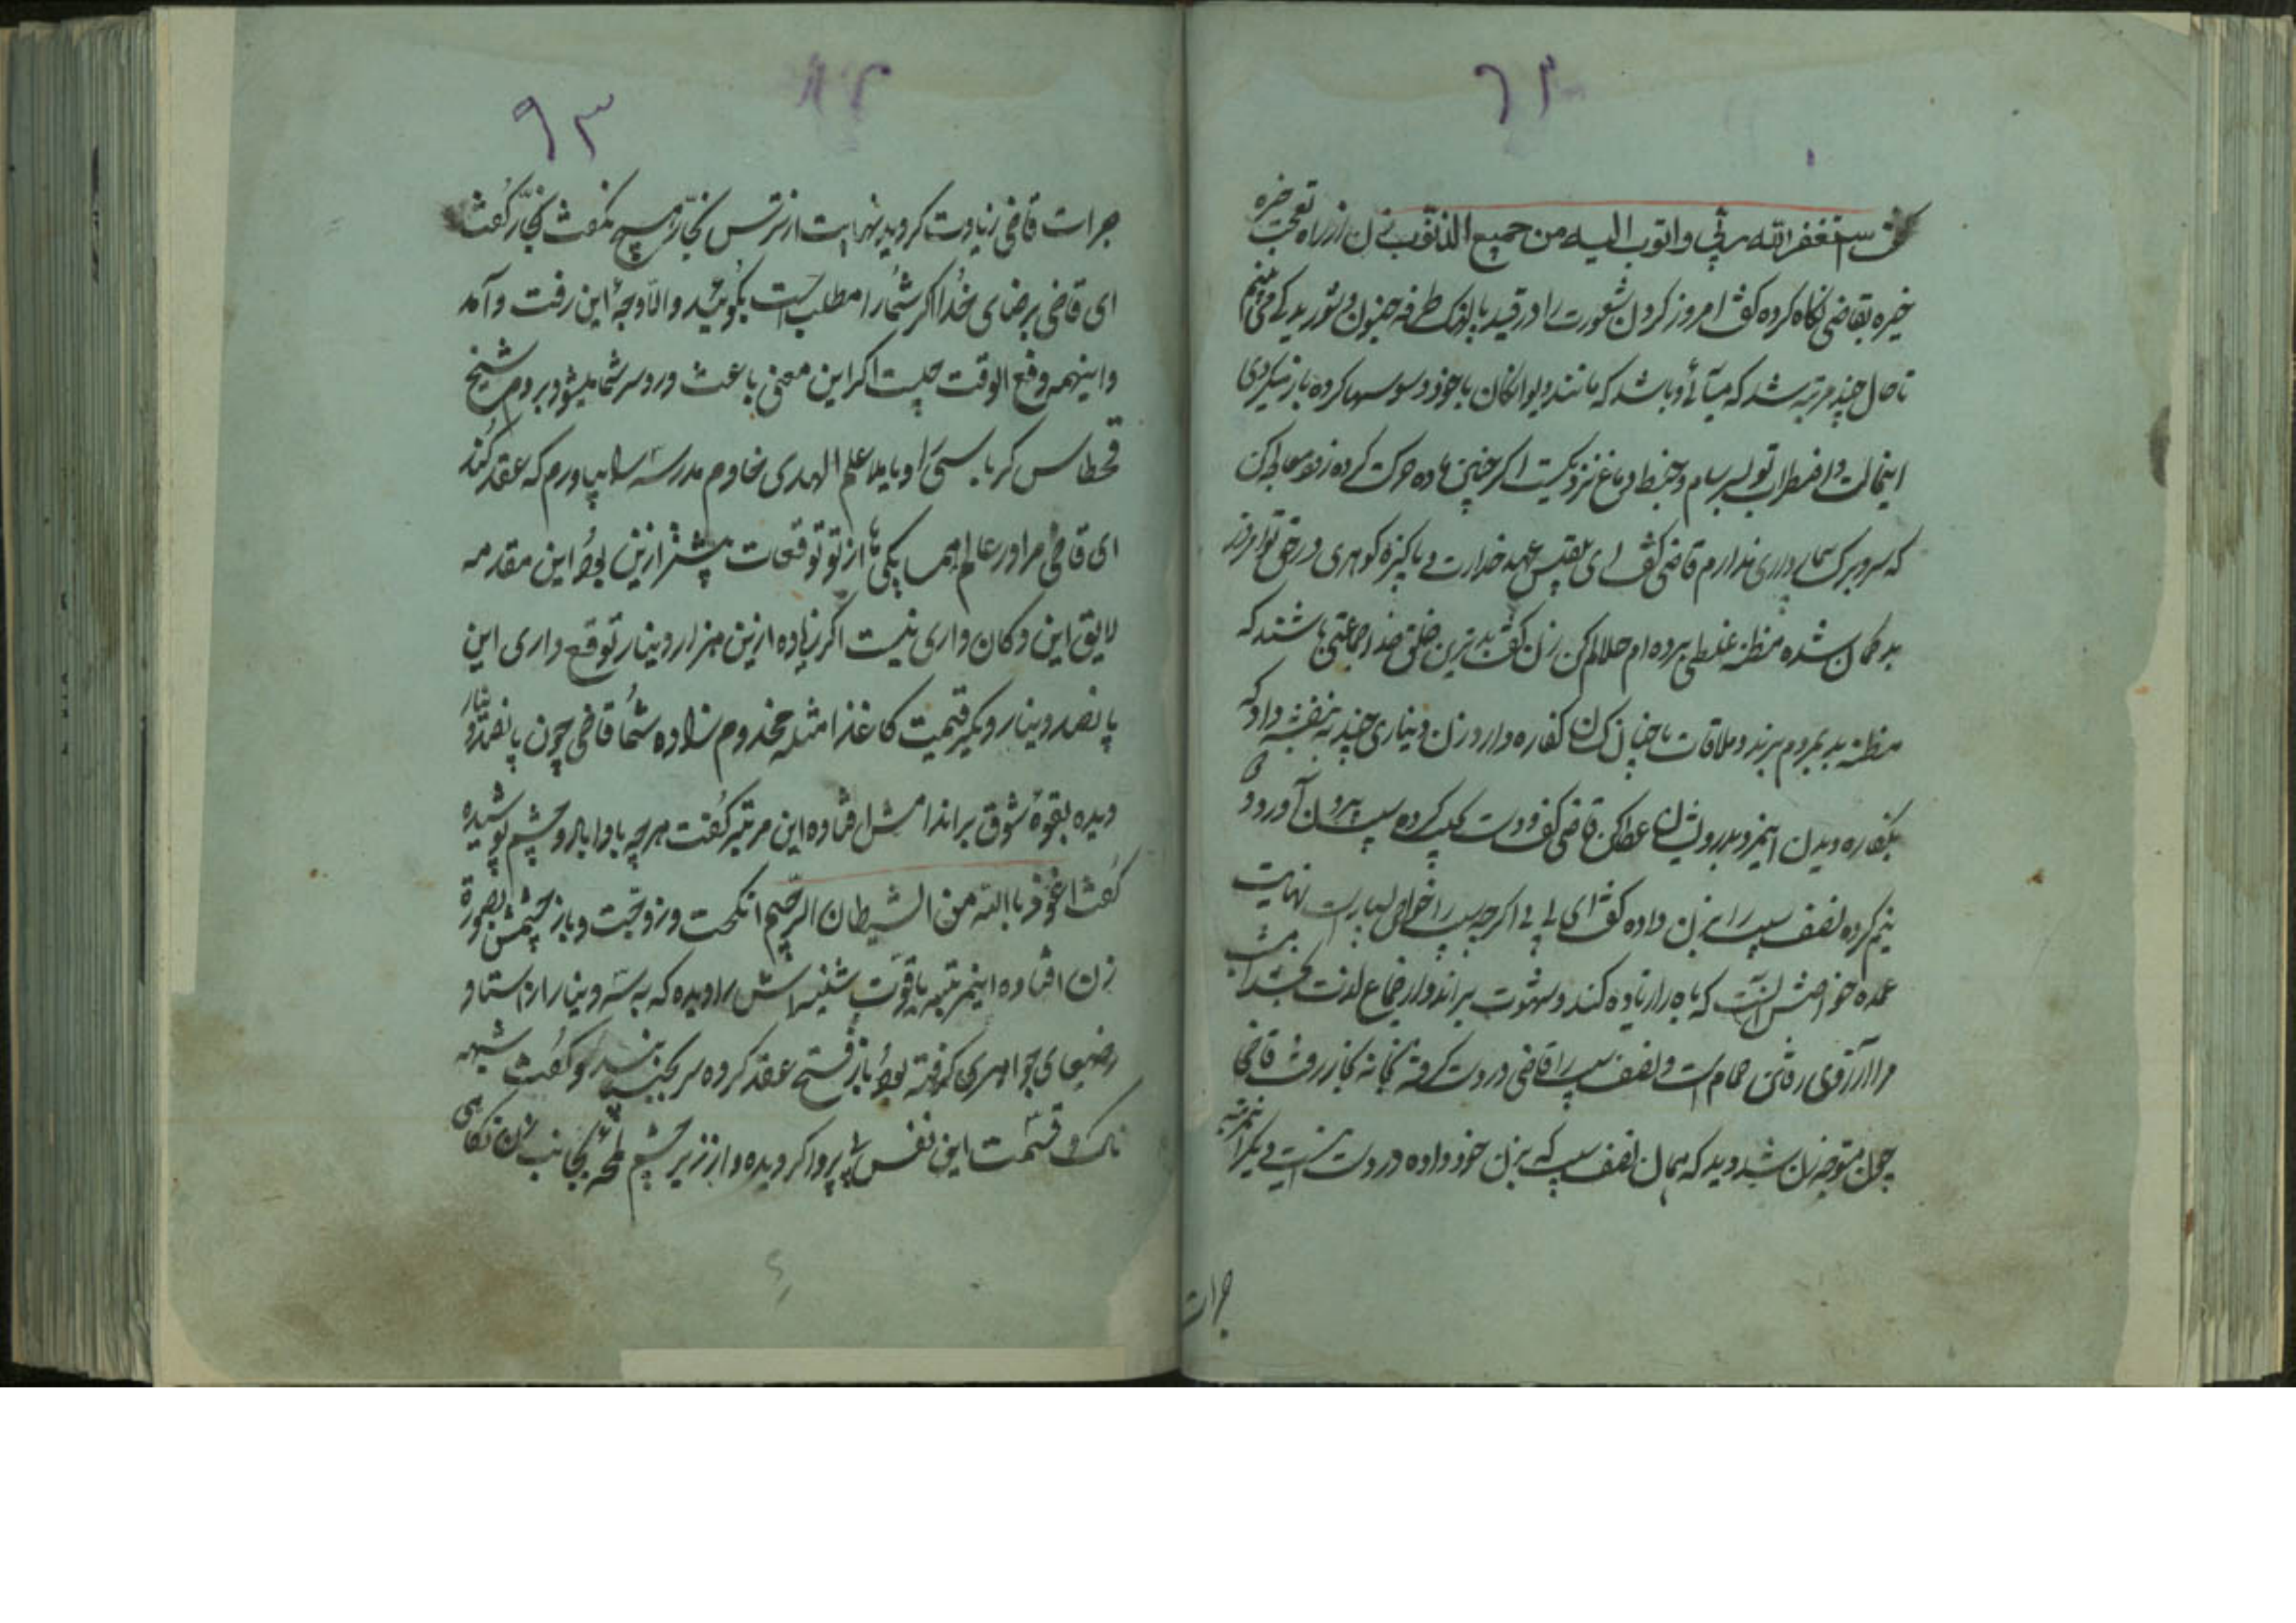 گفت استغفر الله ربی و اتوب الیه من جمیع الذنوب زن از راه تعجب خیره
خیره بقاضی نگاه کرده گفت امروز
تا حال چند مرتبه شد که می آئی و باشد که مانند دیوانگان با خود وسوسها کرده باز میگردی
اینحالت و اضطراب تو بسرسام و خبط دماغ نزدیکست اگر چنین ماده حرکت کرده زود معالجه کن
که سر و برگ بیمار داری ندارم قاضی گفت ای بلقیس عهد خدارت و پاکیزه گوهری در حق تو امروز
بد گمان شده مظنه غلطی برده ام حلالم کن زن گفت بدترین خلق خدا جماعتی باشند که
مظنه بد بمردم برند و ملاقات با چنان کسان کفاره دارد و زن دیناری چند به بنفشه داد که
بکفاره دیدن اینمرد بدرویشان عطا کن قاضی گفت و دست بجیب کرده سیب بیرون آورد و
نیم کرده نصف سیب را بزن داده گفت ای بی بی اگر چه سیب را خواص بسیارست نهایت
عمده خواصش آنست که باه را زیاده کند و شهوت براند و از جماع لذت بخشد
مرا آرزوی رفتن حمام است و نصف سیب را قاضی در دست گرفته بخانه نجار رفت قاضی
چون متوجه زن شد دید که همان نصف سیب که بزن خود داده در دست اینست دیگر اینمرتبه
جرات
۹۳
جرات قاضی زیادت کردید نهایت از ترس نجار هیچ نگفت نجار گفت
ای قاضی برضای خدا اگر شما را مطلبست بگوئید و الا وجه این رفت و آمد
و اینهمه وقع الوقت چیست اگر این معنی باعث درد سر شما میشود بروم شیخ
قحطاس کرباسی را و یا ملا علم الهدی خادم مدرسه را بیاورم که عقد کند
ای قاضی مرا در عالم همسایگیها از تو توقعات بیشتر ازین بود این مقدمه
لایق این دکان داری نیست اگر زیاده ازین هزار دینار توقع داری این
پانصد دینار دیگر قیمت کاغذ امثله مخدوم زاده شما قاضی چون پانصد دینار
دیده بقوه شوق براندامش افتاده این مرتبه گفت هر چه بادا باد و چشم پوشیده
گفت اعوذ باالله من الشیطان الرجیم انکحت و زوجت و باز چشمش بصورة
زن افتاده اینمرتبه یاقوت شنیه اش را دیده که به سه دینار از استاد
رضیعای جواهری گرفته بود باز فسخ عقد کرده سر بجنبانید و گفت شبهه
ناک و قسمت این نفس بی پروا کردیده و از زیر چشم لمحه بجانب زن نگاهی